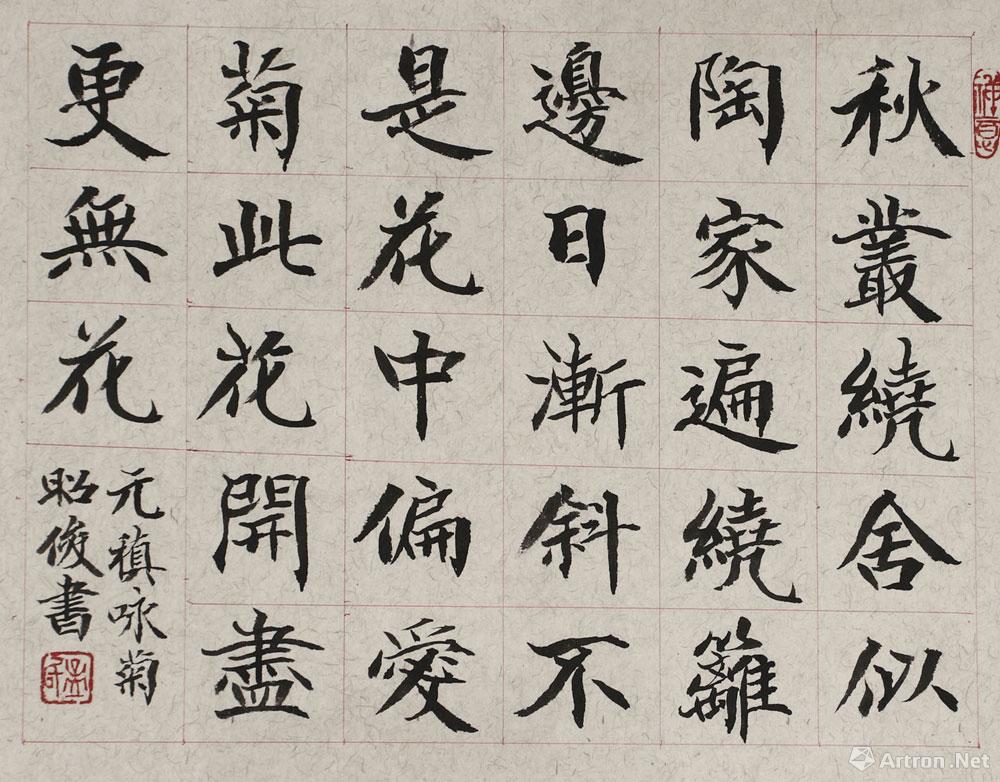 秋叢繞舍似
陶家遍繞籬
邊日漸斜不
是花中偏愛
菊此花開盡
更無花
元稹咏菊
昭俊書
Artron.Net